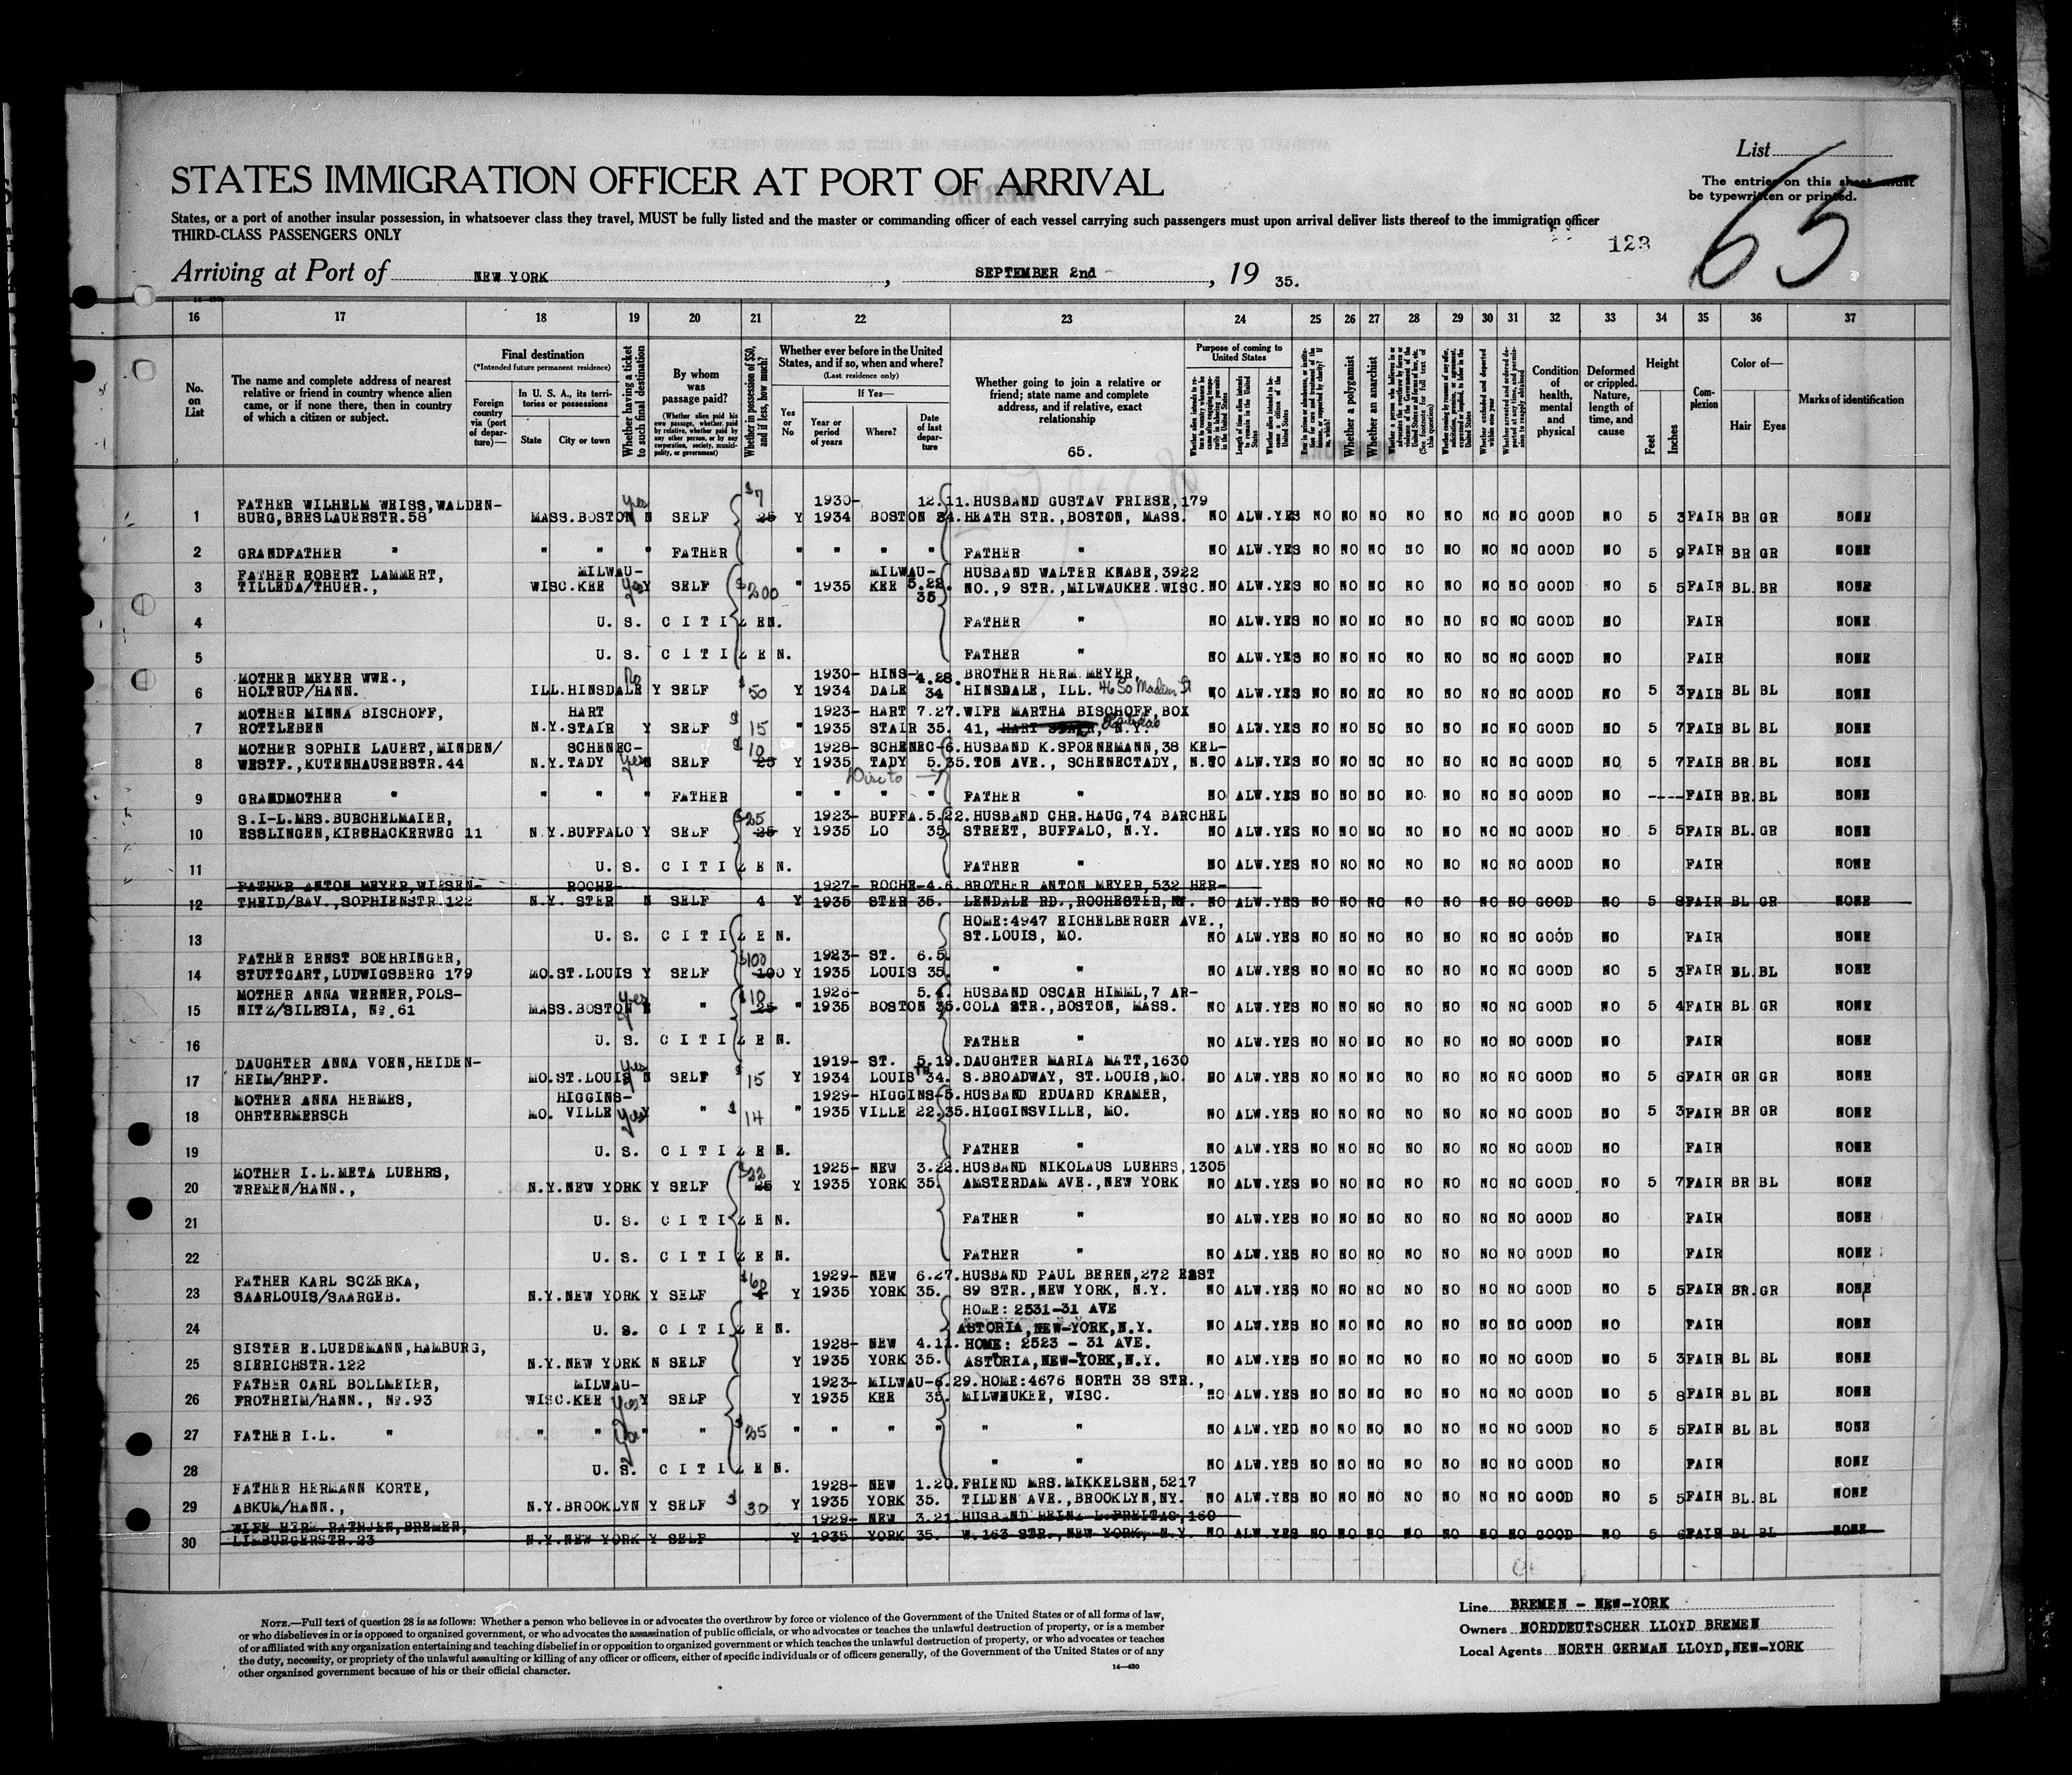 List
The entries on this sheet must
be typewritten or printed.
65
STATES IMMIGRATION OFFICER AT PORT OF ARRIVAL
States, or a port of another insular possession, in whatsoever class they travel, MUST be fully listed and the master or commanding officer of each vessel carrying such passengers must upon arrival deliver lists thereof to the immigration officer
THIRD-CLASS PASSENGERS ONLY
123
Arriving at Port of NEW YORK, SEPTEMBER 2nd, 19 35.
16 17 18 19 20 21 22 23 24 25 26 27 28 29 30 31 32 33 34 35 36 37
No. on List
The name and complete address of nearest relative or friend in country whence alien came, or if none there, then in country of which a citizen or subject.
Final destination
(*Intended future permanent residence)
Foreign country via (port of departure)—
In U. S. A., its territories or possessions
State
City or town
Whether having a ticket to such final destination
By whom was passage paid?
(Whether alien paid his own passage, whether paid by relative, whether paid by any other person, or by any corporation, society, municipality, or government)
Whether in possession of $50, and if less, how much?
Whether ever before in the United States, and if so, when and where?
(Last residence only)
Yes or No
If Yes—
Year or period of years
Where?
Date of last departure
Whether going to join a relative or friend; state name and complete address, and if relative, exact relationship
65.
Purpose of coming to United States
Length of time alien intends to remain in the United States
Whether alien intends to become a citizen of the United States
Whether a polygamist
Whether an anarchist
Condition of health, mental and physical
Deformed or crippled. Nature, length of time, and cause
Height
Feet
Inches
Complexion
Color of—
Hair
Eyes
Marks of identification
FATHER WILHELM WEISS, WALDEN- yes $7 1930- 12.11. HUSBAND GUSTAV FRIESE, 179
1 BURG, BRESLAUERSTR.58 MASS. BOSTON N SELF 25 Y 1934 BOSTON 34. HEATH STR., BOSTON, MASS. NO ALW. YES NO NO NO NO NO NO NO GOOD NO 5 3 FAIR BR GR NONE
2 GRANDFATHER " " " " FATHER " " " " FATHER " NO ALW. YES NO NO NO NO NO NO NO GOOD NO 5 9 FAIR BR GR NONE
FATHER ROBERT LAMMERT, MILWAU- MILWAU- HUSBAND WALTER KNABE, 3922
3 TILLEDA/THUER., WISC. KEE yes Y SELF $200 " 1935 KEE 5.28. 35 NO., 9 STR., MILWAUKEE. WISC. NO ALW. YES NO NO NO NO NO NO NO GOOD NO 5 5 FAIR BL. BR NONE
4 U. S. CITIZEN. FATHER " NO ALW. YES NO NO NO NO NO NO NO GOOD NO FAIR NONE
5 U. S. CITIZEN. FATHER " NO ALW. YES NO NO NO NO NO NO NO GOOD NO FAIR NONE
MOTHER MEYER WWE., no 1930- HINS- 4.28. BROTHER HERM. MEYER,
6 HOLTRUP/HANN. ILL. HINSDALE Y SELF $50 Y 1934 DALE 34 HINSDALE, ILL. 46 So Madison St NO ALW. YES NO NO NO NO NO NO NO GOOD NO 5 3 FAIR BL BL NONE
MOTHER MINNA BISCHOFF, HART 1923- HART 7.27. WIFE MARTHA BISCHOFF, BOX
7 ROTTLEBEN N.Y. STAIR Y SELF $15 " 1935 STAIR 35. 41, N.Y. NO ALW. YES NO NO NO NO NO NO NO GOOD NO 5 7 FAIR BL BL NONE
MOTHER SOPHIE LAUERT, MINDEN/ SCHENEC- $10 1928- SCHENEC- 6. HUSBAND K. SPOENEMANN, 38 KEL-
8 WESTF., KUTENHAUSERSTR.44 N.Y. TADY yes N SELF 25 Y 1935 TADY 5.35. TON AVE., SCHENECTADY, N. NO ALW. YES NO NO NO NO NO NO NO GOOD NO 5 7 FAIR BR. BL NONE
9 GRANDMOTHER " " " " FATHER " " " " FATHER " NO ALW. YES NO NO NO NO NO NO NO GOOD NO ---- FAIR BR. BL NONE
S.I-L. MRS. BURCHELMAIER, $25 1923- BUFFA. 5.22. HUSBAND CHR. HAUG, 74 BARCHEL
10 ESSLINGEN, KIRSHACKERWEG 11 N.Y. BUFFALO Y SELF 25 Y 1935 LO 35. STREET, BUFFALO, N.Y. NO ALW. YES NO NO NO NO NO NO NO GOOD NO 5 5 FAIR BL. GR NONE
11 U. S. CITIZEN. FATHER " NO ALW. YES NO NO NO NO NO NO NO GOOD NO FAIR NONE
FATHER ANTON MEYER, WIESEN- ROCHE- 1927- ROCHE- 4.6. BROTHER ANTON MEYER, 532 HER-
12 THEID/BAV., SOPHIENSTR.122 N.Y. STER N SELF 4 Y 1935 STER 35. LENDALE RD., ROCHESTER, NY. NO ALW. YES NO NO NO NO NO NO NO GOOD NO 5 8 FAIR BL GR NONE
HOME: 4947 EICHELBERGER AVE.,
13 U. S. CITIZEN. ST. LOUIS, MO. NO ALW. YES NO NO NO NO NO NO NO GOOD NO FAIR NONE
FATHER ERNST BOEHRINGER, $100 1923- ST. 6.5.
14 STUTTGART, LUDWIGSBERG 179 MO. ST. LOUIS Y SELF 100 Y 1935 LOUIS 35. " " NO ALW. YES NO NO NO NO NO NO NO GOOD NO 5 3 FAIR BL. BL NONE
MOTHER ANNA WERNER, POLS- yes $10 1926- 5.4. HUSBAND OSCAR HIMML, 7 AR-
15 NITZ/SILESIA, No.61 MASS. BOSTON N " 25 " 1935 BOSTON 35. COLA STR., BOSTON, MASS. NO ALW. YES NO NO NO NO NO NO NO GOOD NO 5 4 FAIR BL GR NONE
16 U. S. CITIZEN. FATHER " NO ALW. YES NO NO NO NO NO NO NO GOOD NO FAIR NONE
DAUGHTER ANNA VOEN, HEIDEN- yes 1919- ST. 5.19. DAUGHTER MARIA MATT, 1630
17 HEIM/RHPF. MO. ST. LOUIS N SELF $15 Y 1934 LOUIS 34. S. BROADWAY, ST. LOUIS, MO. NO ALW. YES NO NO NO NO NO NO NO GOOD NO 5 6 FAIR GR GR NONE
MOTHER ANNA HERMES, HIGGINS- 1929- HIGGINS- 5. HUSBAND EDUARD KRAMER,
18 OHRTERMERSCH MO. VILLE yes Y " $14 " 1935 VILLE 22.35. HIGGINSVILLE, MO. NO ALW. YES NO NO NO NO NO NO NO GOOD NO 5 3 FAIR BR GR NONE
19 U. S. CITIZEN. FATHER " NO ALW. YES NO NO NO NO NO NO NO GOOD NO FAIR NONE
MOTHER I.L. META LUEHRS, $22 1925- NEW 3.22. HUSBAND NIKOLAUS LUEHRS, 1305
20 WREMEN/HANN., N.Y. NEW YORK Y SELF 25 Y 1935 YORK 35. AMSTERDAM AVE., NEW YORK NO ALW. YES NO NO NO NO NO NO NO GOOD NO 5 7 FAIR BR BL NONE
21 U. S. CITIZEN. FATHER " NO ALW. YES NO NO NO NO NO NO NO GOOD NO FAIR NONE
22 U. S. CITIZEN. FATHER " NO ALW. YES NO NO NO NO NO NO NO GOOD NO FAIR NONE
FATHER KARL SCZERKA, $60 1929- NEW 6.27. HUSBAND PAUL BEREN, 272 EAST
23 SAARLOUIS/SAARGEB. N.Y. NEW YORK Y SELF 4 Y 1935 YORK 35. 89 STR., NEW YORK, N.Y. NO ALW. YES NO NO NO NO NO NO NO GOOD NO 5 5 FAIR BR. GR NONE
HOME: 2531-31 AVE
24 U. S. CITIZEN. ASTORIA, NEW-YORK, N.Y. NO ALW. YES NO NO NO NO NO NO NO GOOD NO FAIR NONE
SISTER E. LUEDEMANN, HAMBURG, 1928- NEW 4.11. HOME: 2523 - 31 AVE.
25 SIERICHSTR.122 N.Y. NEW YORK N SELF Y 1935 YORK 35. ASTORIA, NEW-YORK, N.Y. NO ALW. YES NO NO NO NO NO NO NO GOOD NO 5 3 FAIR BL BL NONE
FATHER CARL BOLLMEIER, MILWAU- 1923- MILWAU- 6.29. HOME: 4676 NORTH 38 STR.,
26 FROTHEIM/HANN., No.93 WISC. KEE yes Y SELF Y 1935 KEE 35. MILWAUKEE, WISC. NO ALW. YES NO NO NO NO NO NO NO GOOD NO 5 8 FAIR BL BL NONE
27 FATHER I.L. " " " yes " " $25 " " " " " " NO ALW. YES NO NO NO NO NO NO NO GOOD NO 5 5 FAIR BL BL NONE
28 U. S. CITIZEN. " " NO ALW. YES NO NO NO NO NO NO NO GOOD NO FAIR NONE
FATHER HERMANN KORTE, 1928- NEW 1.20. FRIEND MRS. MIKKELSEN, 5217
29 ABKUM/HANN., N.Y. BROOKLYN Y SELF $30 Y 1935 YORK 35. TILDEN AVE., BROOKLYN, NY. NO ALW. YES NO NO NO NO NO NO NO GOOD NO 5 5 FAIR BL. BL NONE
WIFE HERM. RATHJEN, BREMEN, 1929- NEW 3.21. HUSBAND HEINZ L. FREITAG, 160
30 LIMBURGERSTR.23 N.Y. NEW YORK Y SELF Y 1935 YORK 35. W. 163 STR., NEW YORK, N.Y. NO ALW. YES NO NO NO NO NO NO NO GOOD NO 5 6 FAIR BL BL NONE
NOTE.—Full text of question 28 is as follows: Whether a person who believes in or advocates the overthrow by force or violence of the Government of the United States or of all forms of law,
or who disbelieves in or is opposed to organized government, or who advocates the assassination of public officials, or who advocates or teaches the unlawful destruction of property, or is a member
of or affiliated with any organization entertaining and teaching disbelief in or opposition to organized government or which teaches the unlawful destruction of property, or who advocates or teaches
the duty, necessity, or propriety of the unlawful assaulting or killing of any officer or officers, either of specific individuals or of officers generally, of the Government of the United States or of any
other organized government because of his or their official character.
14—430
Line BREMEN - NEW-YORK
Owners NORDDEUTSCHER LLOYD BREMEN
Local Agents NORTH GERMAN LLOYD, NEW-YORK